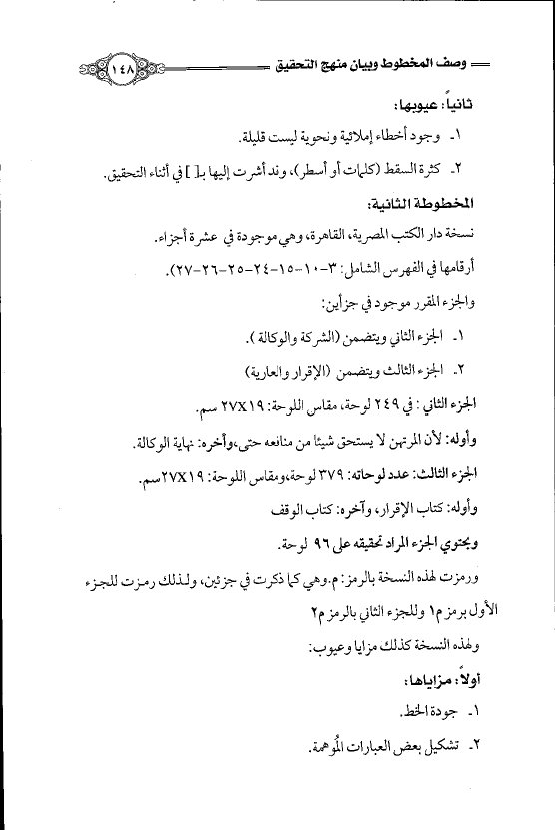 وصف المخطوط وبيان منهج التحقيق
١٤٨
ثانياً: عيوبها:
١ـ وجود أخطاء إملائية ونحوية ليست قليلة.
٢ـ كثرة السقط (كلمات أو أسطر)، وند أشرت إليها بـ[ ] في أثناء التحقيق.
المخطوطة الثانية:
نسخة دار الكتب المصرية، القاهرة، وهي موجودة في عشرة أجزاء.
أرقامها في الفهرس الشامل: ٣-١٠-١٥-٢٤-٢٥-٢٦-٢٧).
والجزء المقرر موجود في جزأين:
١ـ الجزء الثاني ويتضمن (الشركة والوكالة ).
٢ـ الجزء الثالث ويتضمن (الإقرار والعارية)
الجزء الثاني : في ٢٤٩ لوحة، مقاس اللوحة: ١٩X٢٧ سم.
وأوله: لأن المرتهن لا يستحق شيئا من منافعه حتى،وآخره: نهاية الوكالة.
الجزء الثالث: عدد لوحاته: ٣٧٩ لوحة،ومقاس اللوحة: ١٩X٢٧سم.
وأوله: كتاب الإقرار، وآخره: كتاب الوقف
ويحتوي الجزء المراد تحقيقه على ٩٦ لوحة.
ورمزت لهذه النسخة بالرمز: م.وهي كما ذكرت في جزئين، ولذلك رمزت للجزء
الأول برمز م١ وللجزء الثاني بالرمز م٢
ولهذه النسخة كذلك مزايا وعيوب:
أولاً: مزاياها:
١ـ جودة الخط.
٢ـ تشكيل بعض العبارات المُوهمة.